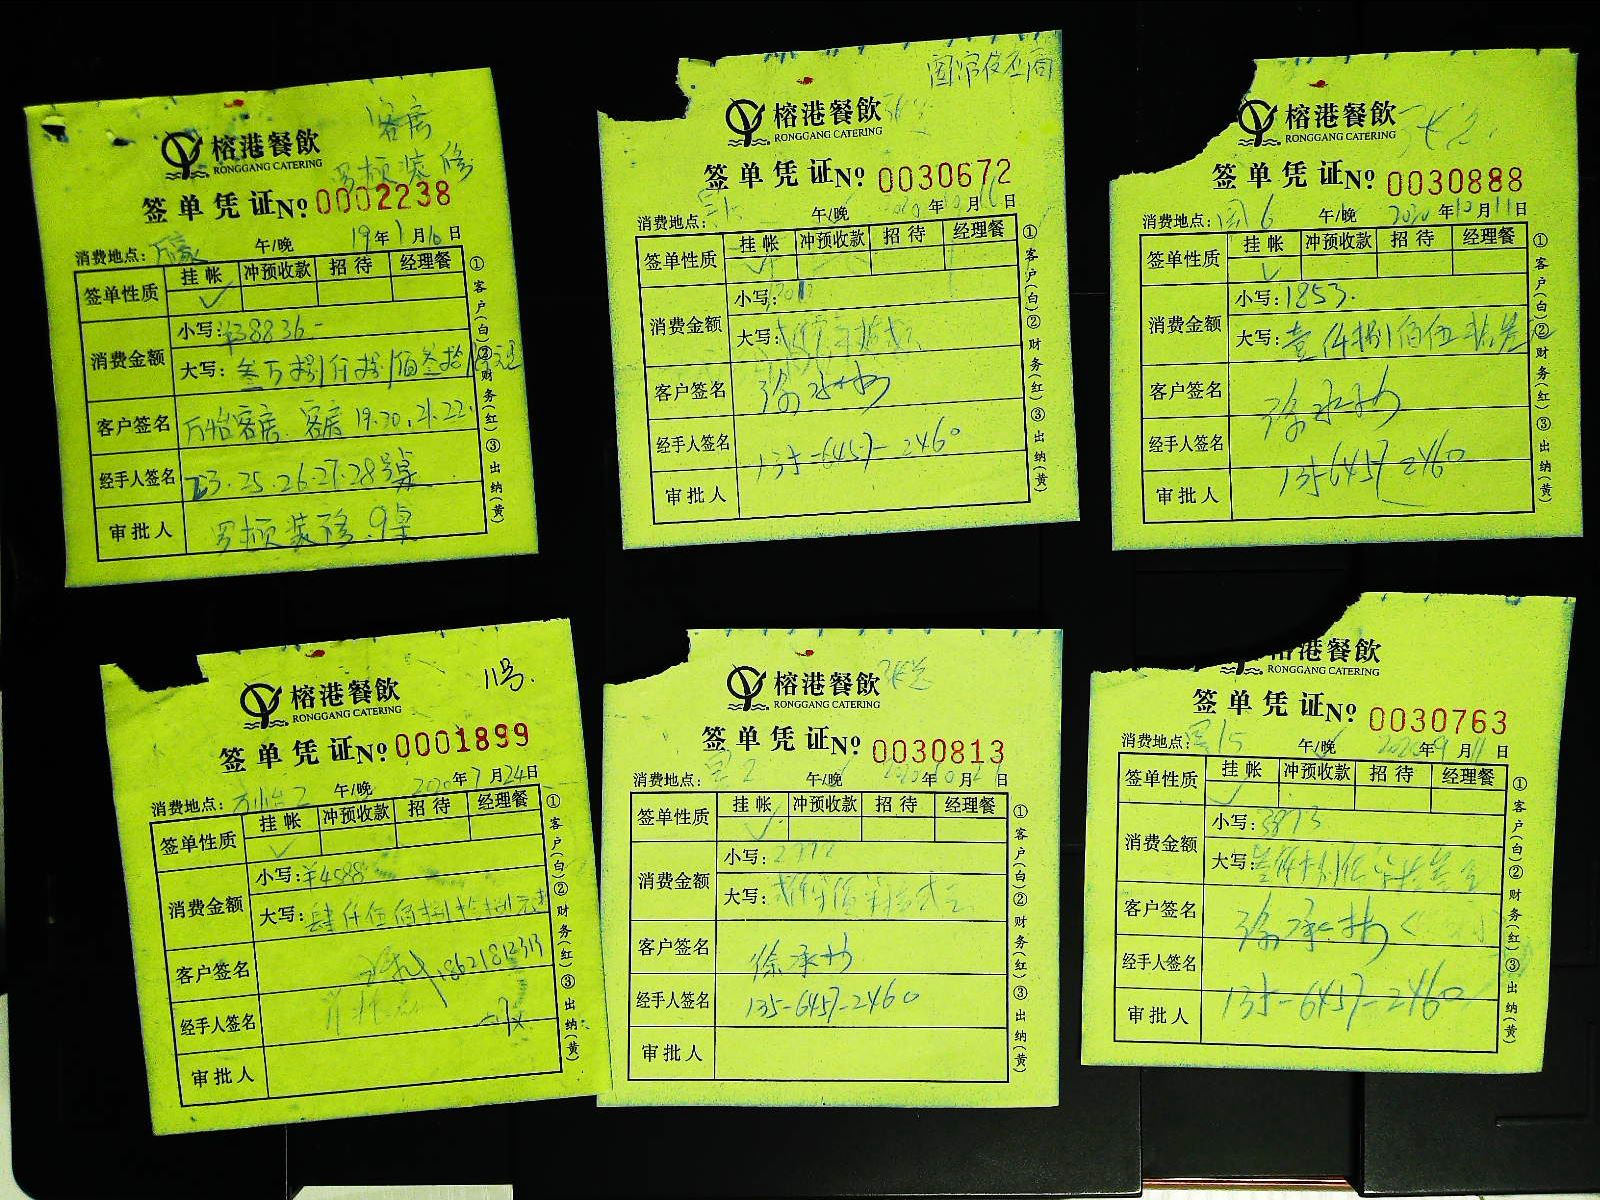 客房
罗顿装修
榕港餐飲
RONGGANG CATERING
签单凭证№ 0002238
消费地点: 万豪 午/晚 19年1月16日
签单性质 挂帐 冲预收款 招待 经理餐
✓
消费金额 小写: ¥38836-
大写: 叁万捌仟捌佰叁拾
客户签名 万怡客房 客房19.20.21.22.
经手人签名 23.25.26.27.28号桌
审批人 罗顿装修.9桌
①客户(白)②财务(红)③出纳(黄)
榕港餐飲
RONGGANG CATERING
签单凭证№ 0030672
消费地点: 午/晚 2020年10月 日
签单性质 挂帐 冲预收款 招待 经理餐
✓
消费金额 小写:
大写:
客户签名
经手人签名 135-6457-2460
审批人
①客户(白)②财务(红)③出纳(黄)
榕港餐飲
RONGGANG CATERING
签单凭证№ 0030888
消费地点: 6 午/晚 2020年10月11日
签单性质 挂帐 冲预收款 招待 经理餐
✓
消费金额 小写: 1853.
大写: 壹仟捌佰伍拾叁
客户签名 徐承枥
经手人签名 135-6457-2460
审批人
①客户(白)②财务(红)③出纳(黄)
11号.
榕港餐飲
RONGGANG CATERING
签单凭证№ 0001899
消费地点: 午/晚 2020年7月24日
签单性质 挂帐 冲预收款 招待 经理餐
✓
消费金额 小写: ¥4588
大写: 肆仟伍佰捌拾捌元
客户签名 18621812313
经手人签名
审批人
①客户(白)②财务(红)③出纳(黄)
榕港餐飲
RONGGANG CATERING
签单凭证№ 0030813
消费地点: 2 午/晚 2020年10月2日
签单性质 挂帐 冲预收款 招待 经理餐
✓
消费金额 小写:
大写:
客户签名
经手人签名 135-6457-2460
审批人
①客户(白)②财务(红)③出纳(黄)
榕港餐飲
RONGGANG CATERING
签单凭证№ 0030763
消费地点: 15 午/晚 2020年9月11日
签单性质 挂帐 冲预收款 招待 经理餐
✓
消费金额 小写: 3873
大写:
客户签名
经手人签名
审批人 135-6457-2460
①客户(白)②财务(红)③出纳(黄)